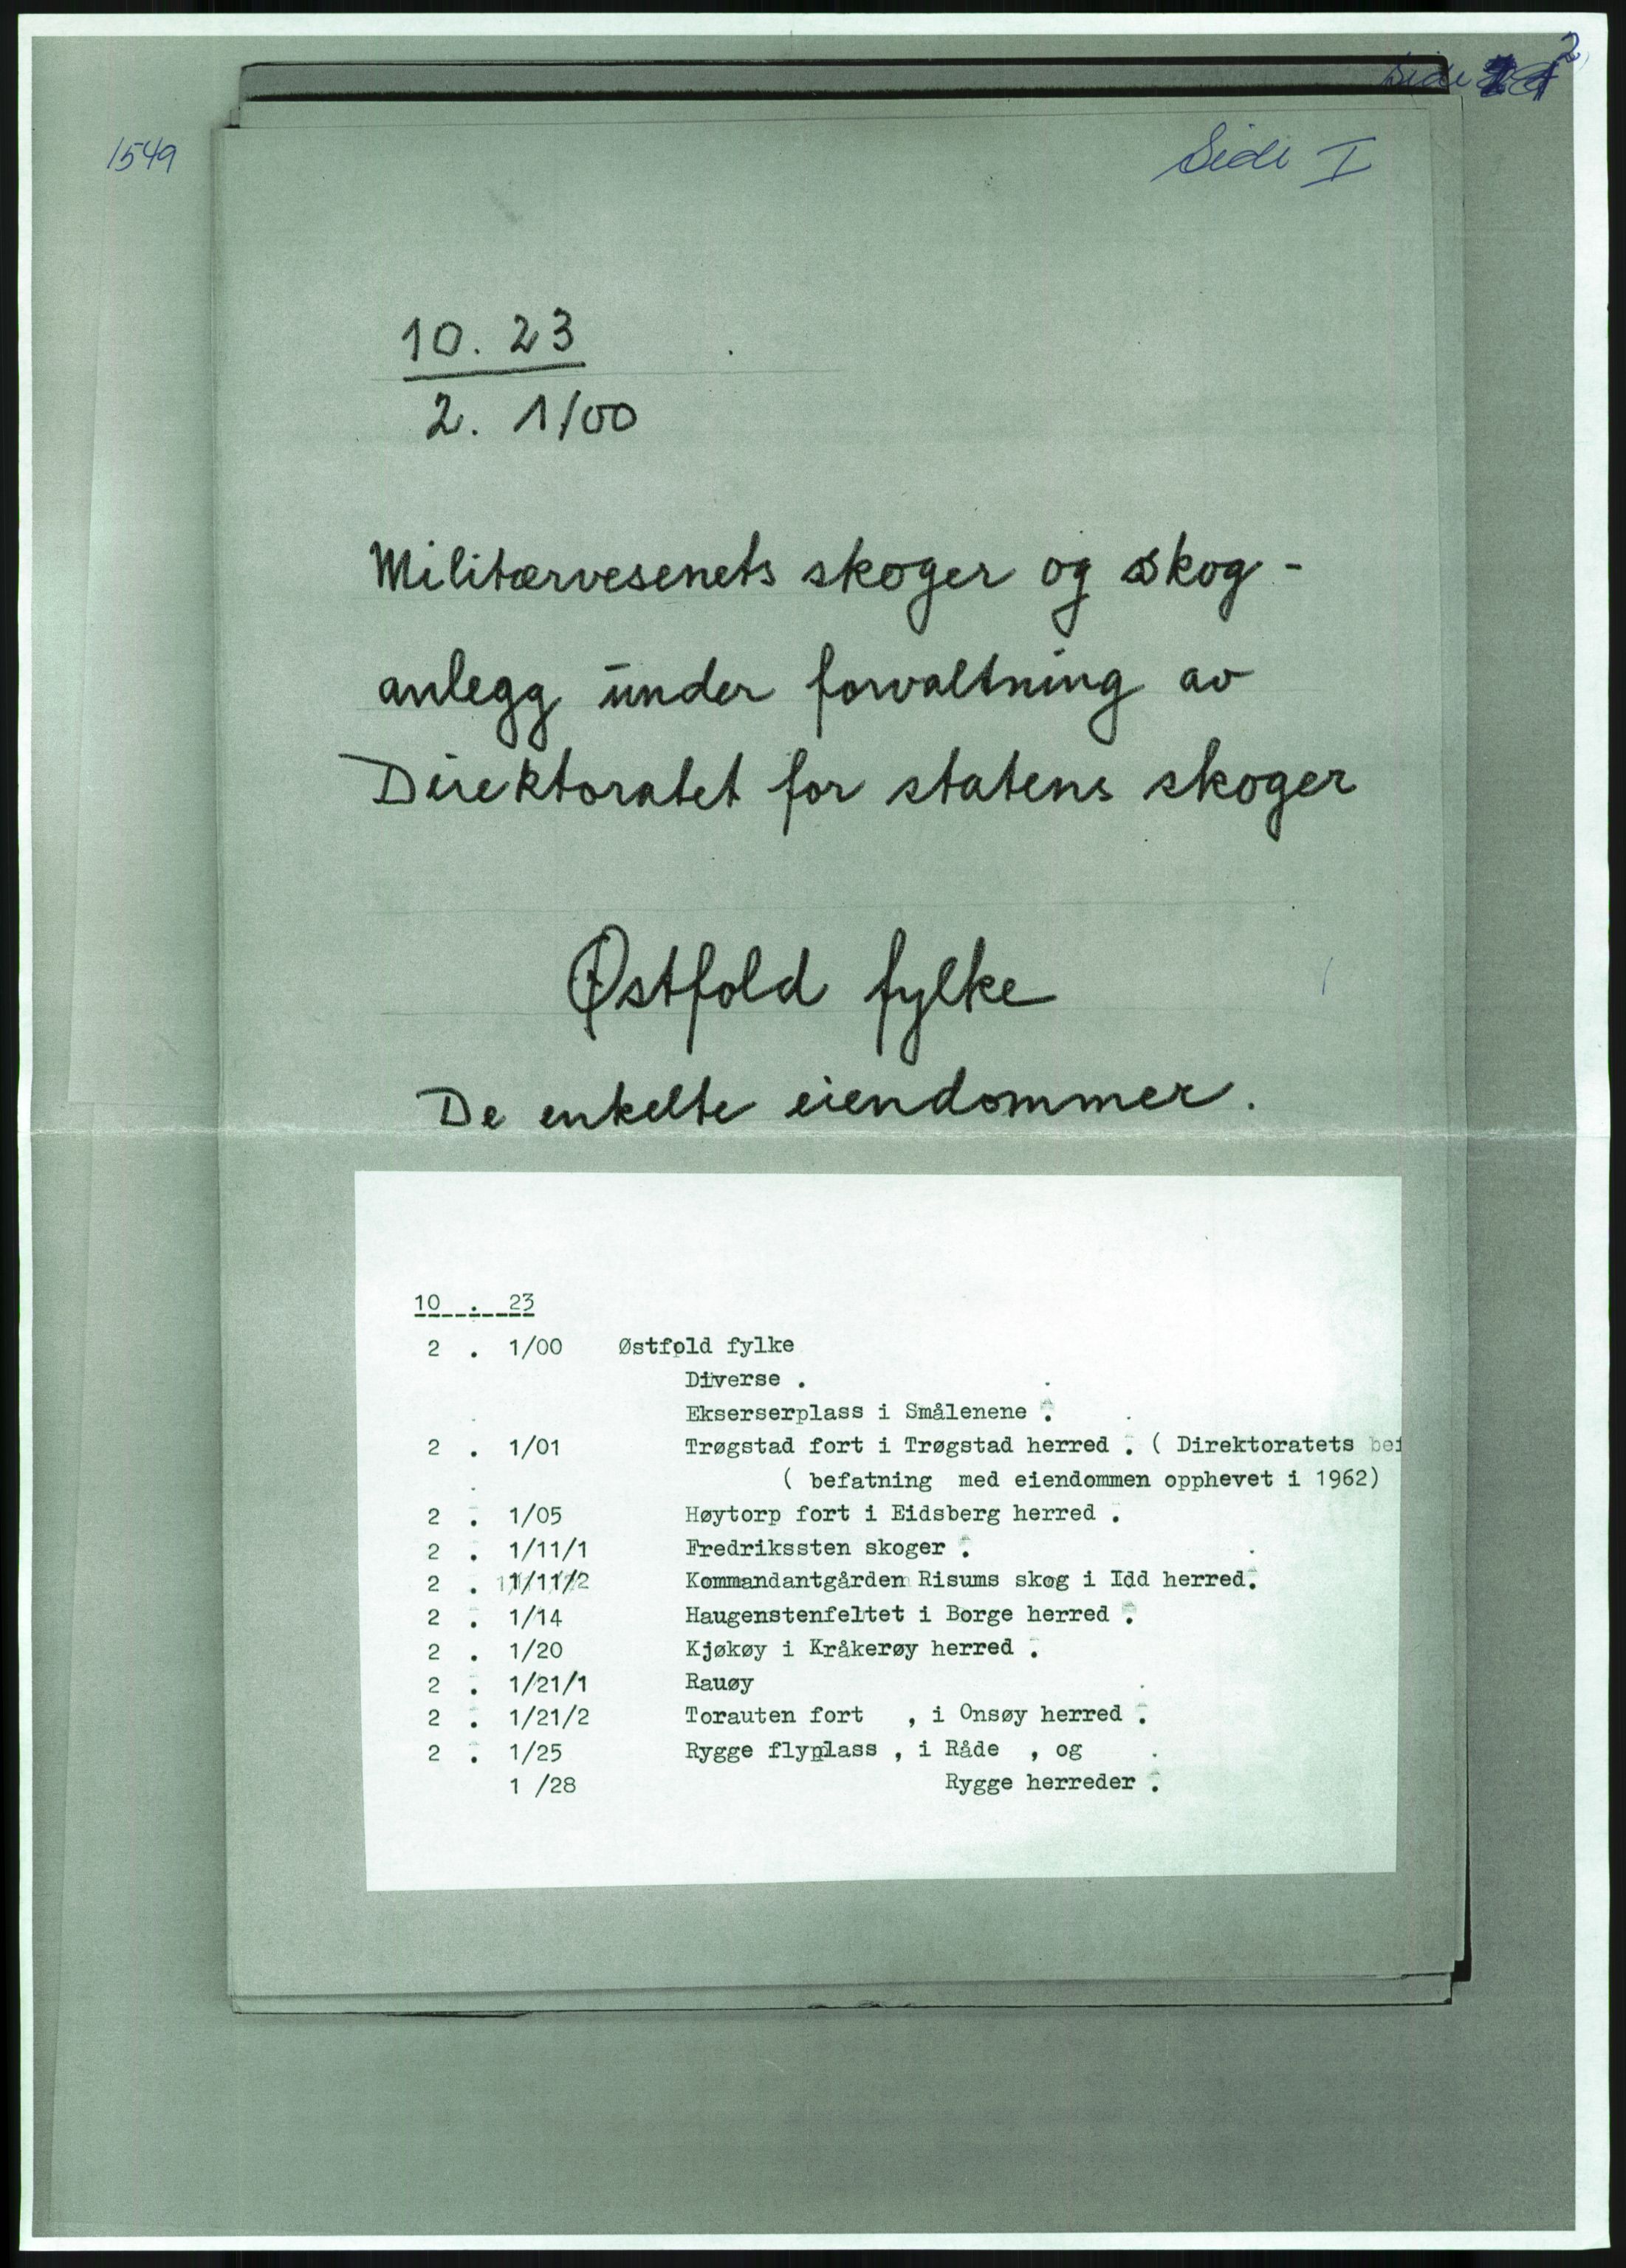 Side 2
1549
Side I
10. 23
2. 1/00
Militærvesenets skoger og skog-
anlegg under forvaltning av
Direktoratet for statens skoger
Østfold fylke
De enkelte eiendommer.
10 . 23
2 . 1/00 Østfold fylke
Diverse .
Ekserserplass i Smålenene .
2 . 1/01 Trøgstad fort i Trøgstad herred . ( Direktoratets bef
( befatning med eiendommen opphevet i 1962)
2 . 1/05 Høytorp fort i Eidsberg herred .
2 . 1/11/1 Fredrikssten skoger .
2 . 1/11/2 Kommandantgården Risums skog i Idd herred.
2 . 1/14 Haugenstenfeltet i Borge herred .
2 . 1/20 Kjøkøy i Kråkerøy herred .
2 . 1/21/1 Rauøy
2 . 1/21/2 Torauten fort , i Onsøy herred .
2 . 1/25 Rygge flyplass , i Råde , og
1 /28 Rygge herreder .